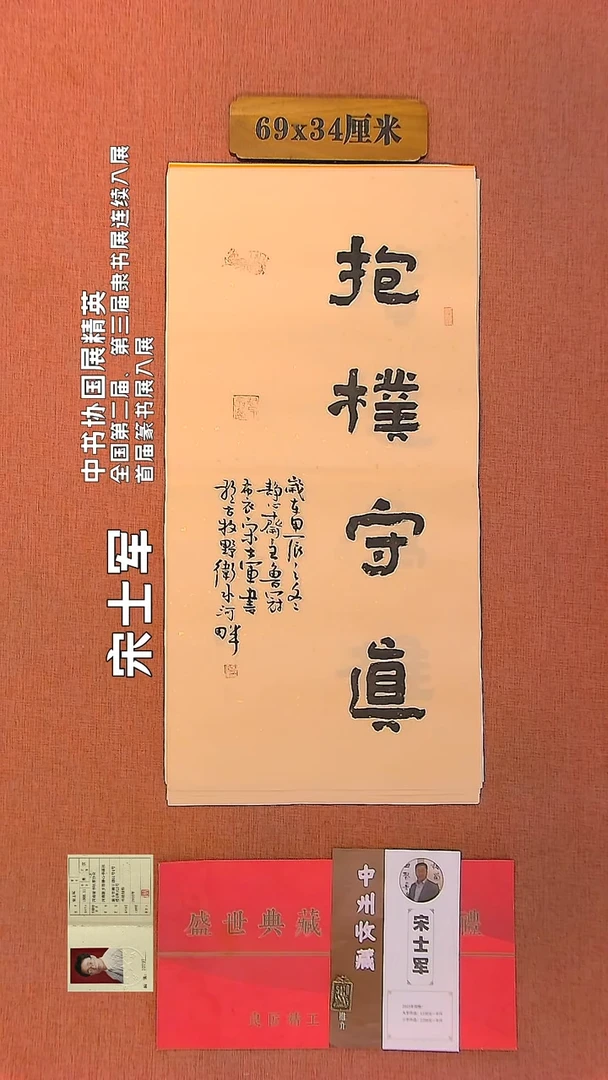 69x34厘米
抱樸守真
歲在甲辰之冬
靜心齋主魯冠
布衣宋士軍書
於古牧野衛水河畔
宋士军
中书协国展精英
全国第二届、第三届隶书展连续入展
首届篆书展入展
盛世典藏
禮
中州收藏
推介
宋士军